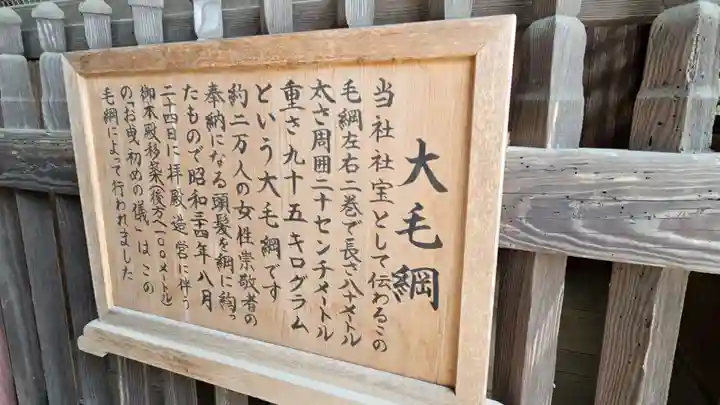 大毛綱
当社社宝として伝わるこの
毛綱左右二巻で長さ八十メートル
太さ周囲二十センチメートル
重さ九十五キログラム
という大毛綱です
約二万人の女性崇敬者の
奉納になる頭髪を綱に綯っ
たもので昭和三四年八月
二十四日に拝殿造営に伴う
御本殿移築(後方へ一〇〇メートル)
の「お曳初めの儀」はこの
毛綱によって行われました